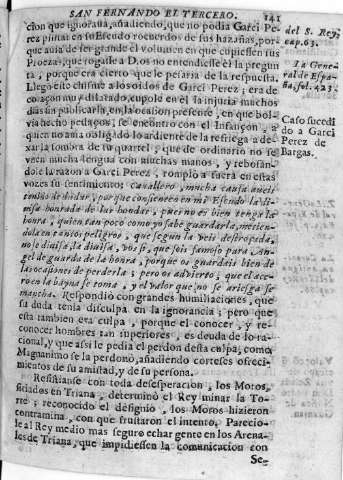 SAN FERNANDO EL TERCERO. 141
cion que ignoraua, añadiendo, que no podia Garci Pe-
rez pintar en su Escudo recuerdos de sus hazañas, por-
que auia de ser grande el volumen en que cupiessen sus
Proezas, que rogasse a Dios no entendiesse él la pregun
ta, porque era cierto que le pesaria de la respuesta.
Llegò este chisme a los oidos de Garci Perez; era de
coraçon muy dilatado, cupole en el la injuria muchos
dias sin publicarla, en la ocasion presente, en que bol-
via hecho pedaços, se encontrò con el Infançon, a
quien no ama obligado lo ardiente de la refriega a de-
xar la sombra de su quartel; que de ordinario no se
ven mucha lengua con muchas manos, y rebosan-
dole la razon a Garci Perez, rompiò a fuera en estas
vozes su sentimiento: Cavallero, mucha causa aueis
tenido de dudar, porque consienten en mi Escudo la di-
uisa honrada de las hondas, pues no es bien tenga la
honra, quien tan poco como yo sabe guardarla, metien-
dola en tantos peligros, que segun la veis destroçada,
no se diuisa, la diuisa, vos si, que sois famoso para An-
gel de guarda de la honra, porque os guardais bien de
las ocasiones de perderla; pero os advierto, que el ace-
ro en la bayna se toma, y el valor que no se arriesga se
mancha. Respondiò con grandes humiliaciones, que
su duda tenia disculpa en la ignorancia; pero que
esta tambien era culpa, porque el conocer, y re-
conocer hombres tan superiores, es deuda de lo ra-
cional, y que assi le pedia el perdon desta culpa, como
Magnanimo se la perdonò, añadiendo corteses ofreci-
mientos de su amistad, y de su persona.
Resistianse con toda desesperacion, los Moros,
sitiados en Triana, determinò el Rey minar la To-
rre; reconocido el designio, los Moros hizieron
contramina, con que frustaron el intento. Parecio-
le al Rey medio mas seguro echar gente en los Arena-
les de Triana, que impidiessen la comunicacion con
Se-
del S. Rey,
cap. 63.
La Gene-
ral de Espa-
ña, fol. 423.
Caso sucedi
do a Garci
Perez de
Bargas.